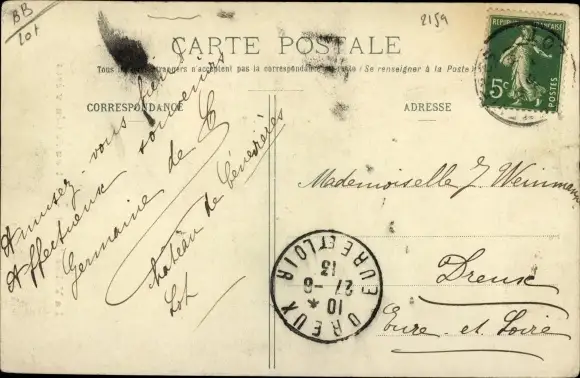 BB
Lot
2159
CARTE POSTALE
Tous les étrangers n'acceptent pas la correspondance au recto (Se renseigner à la Poste)
CORRESPONDANCE
ADRESSE
REPUBLIQUE FRANÇAISE
5c
POSTES
LOT
Amusez-vous bien
Affectueux souvenirs
Germaine de
Château de Cénevières
Lot
Mademoiselle J Weinmann
Dreux
Eure et Loire
DREUX
EURE ET LOIR
10 *
27 - 8
13